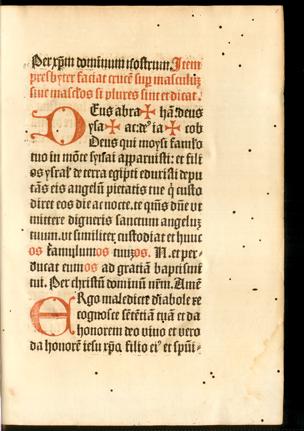 Per xp̄m dominum nostrum. Item
presbyter faciat crucē sup̄ masculuꝫ
siue masclos si plures sint et dicat.
DEus abra✠ hā. deus
ysa✠ ac. deꝰ ia✠ cob
Deus qui moysi famlo
tuo in mōte synai apparuisti: et fili
os ysrl̄ de terra egipti eduxisti depu
tās eis angelū pietatis tue q̇ custo
diret eos die ac nocte. te qm̄s dn̄e vt
mittere digneris sanctum angeluꝫ
tuum. vt similiter custodiat et hunc
os famulum os tuuꝫ os. N. et per-
ducat eum os ad gratiā baptismi
tui. Per christū dominū nrm̄. Amē
ERgo maledicte diabole re
cognosce sētētiā tuā et da
honorem deo viuo et vero
da honorē iesu xp̄o filio eiꝰ et spūi-